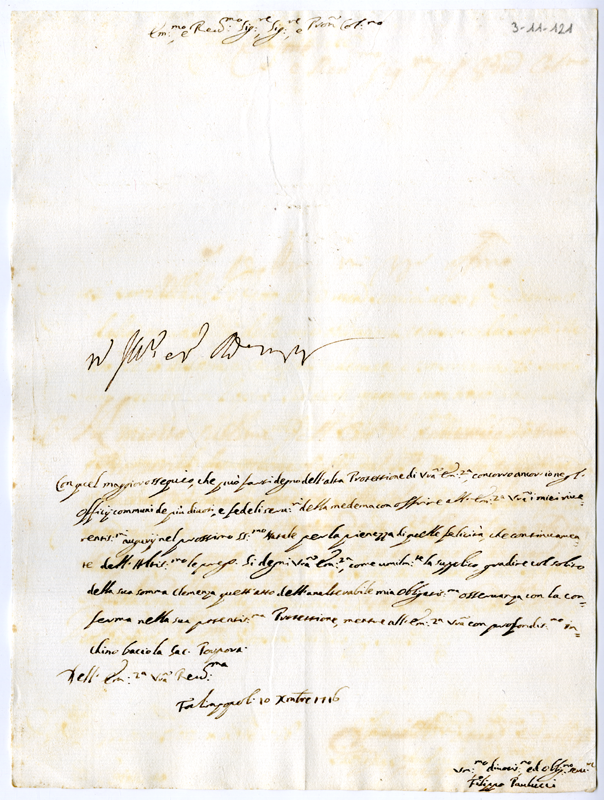 Em:mo e Rev:mo Sig:re Sig:re e Pron Col:mo
3-11-121
Con quel maggior ossequio, che può farsi degno dell'alta Protessione di Vra Em:za concorro ancor io negl'
officij communi de più divoti, e fedeli serv:ri della medema con offrire all'Em:za Vra i miei rive-
rentis:mi augurij nel prossimo SS:mo Natale per la pienezza di quelle felicità, che continuamen-
te dall'Altis:mo le prego. Si degni Vra Em:za, come umilm:te la supplico gradire col solito
della sua somma clemenza quest'atto dell'inalterabile mia obligatis:ma osservanza con la con-
ferma nella sua potentis:ma Protessione, mentre all'Em:za Vra con profondis:mo in-
chino bacio la Sac: Porpora.
Dell' Em:za Vra Rev:ma
10 Xmbre 1716
Um:mo divotis:mo ed obblig:mo serv:re
Filippo Paulucci